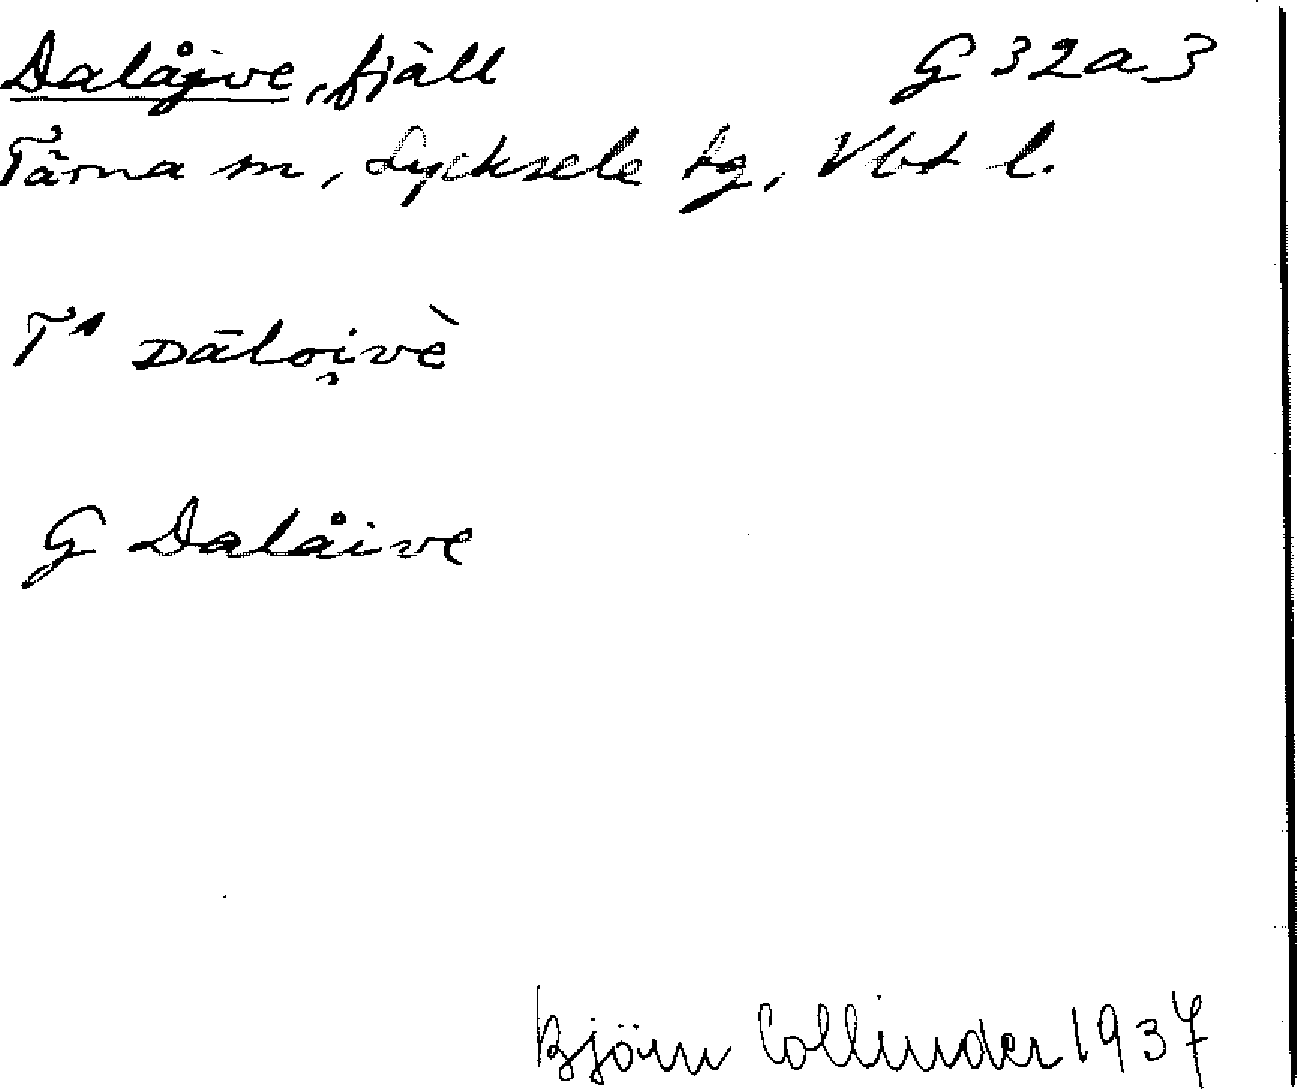 Dalåjve, fjäll G 32a3
Tärna sn, Lycksele lg, Vbt l.
T¹ Dāloi̯vè
G Dalåive
Björn Collinder 1937